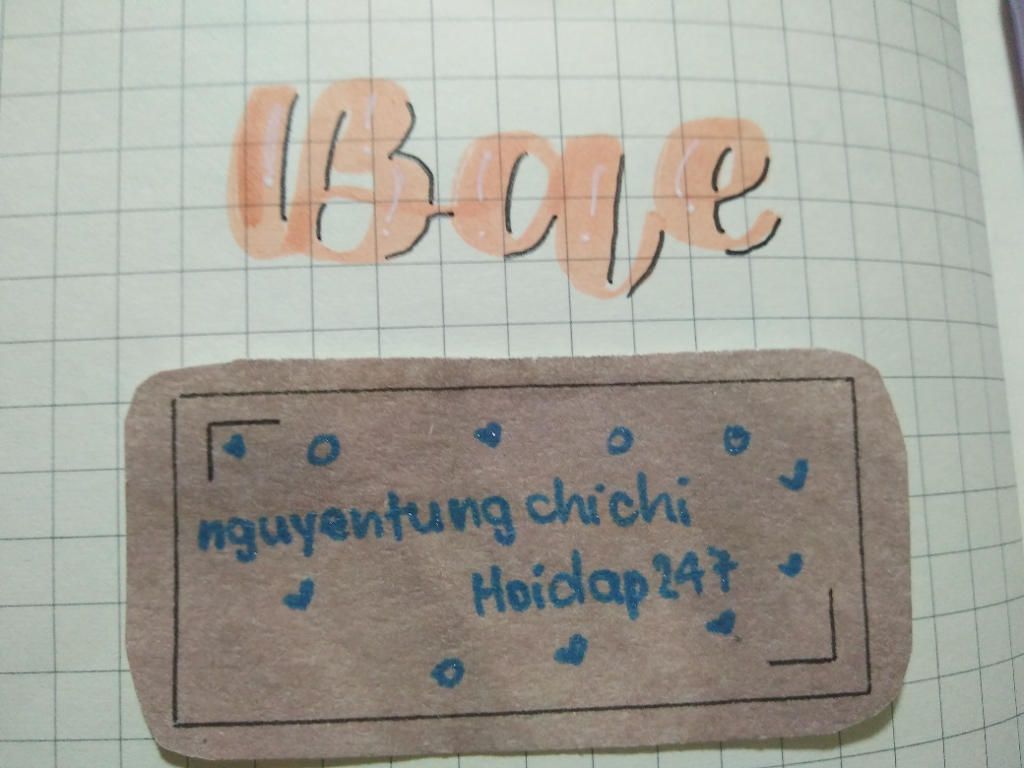 Bae
nguyentung chichi
Hoidap247